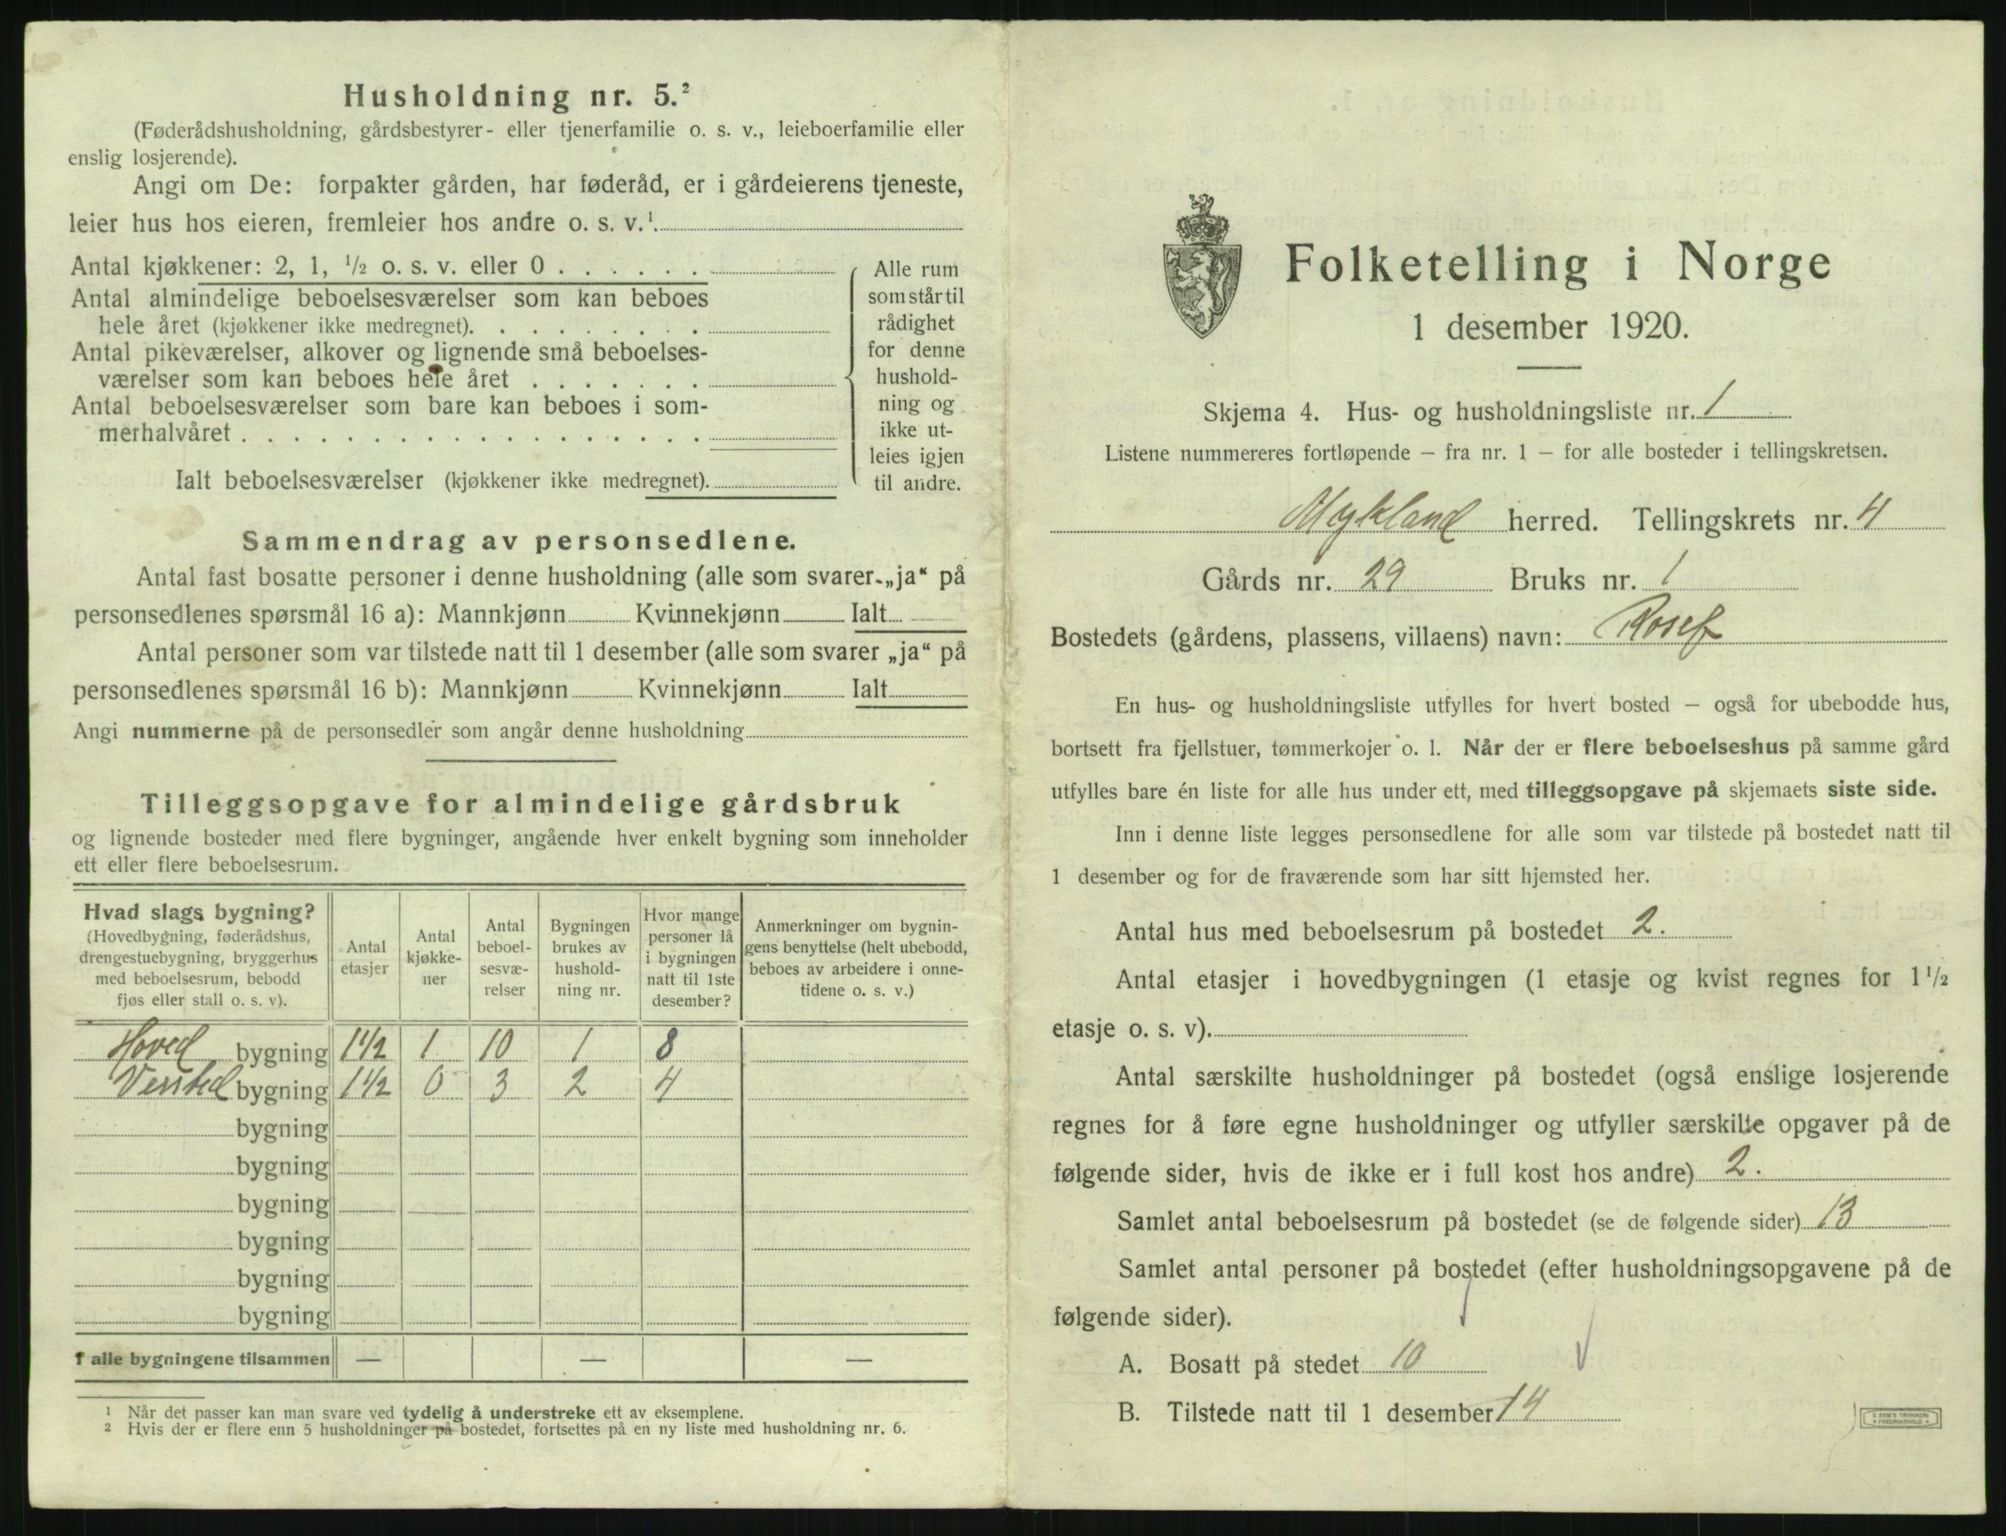 Husholdning nr. 5.²
(Føderådshusholdning, gårdsbestyrer- eller tjenerfamilie o. s. v., leieboerfamilie eller
enslig losjerende).
Angi om De: forpakter gården, har føderåd, er i gårdeierens tjeneste,
leier hus hos eieren, fremleier hos andre o. s. v.¹
Antal kjøkkener: 2, 1, ½ o. s. v. eller 0 . . . . . .
Antal almindelige beboelsesværelser som kan beboes
hele året (kjøkkener ikke medregnet). . . . . . . . .
Antal pikeværelser, alkover og lignende små beboelses-
værelser som kan beboes hele året . . . . . . .
Antal beboelsesværelser som bare kan beboes i som-
merhalvåret . . . . . . . . . . . . . . . . . .
Ialt beboelsesværelser (kjøkkener ikke medregnet).
Alle rum
som står til
rådighet
for denne
hushold-
ning og
ikke ut-
leies igjen
til andre.
Sammendrag av personsedlene.
Antal fast bosatte personer i denne husholdning (alle som svarer „ja“ på
personsedlenes spørsmål 16 a): Mannkjønn Kvinnekjønn Ialt
Antal personer som var tilstede natt til 1 desember (alle som svarer „ja“ på
personsedlenes spørsmål 16 b): Mannkjønn Kvinnekjønn Ialt
Angi nummerne på de personsedler som angår denne husholdning
Tilleggsopgave for almindelige gårdsbruk
og lignende bosteder med flere bygninger, angående hver enkelt bygning som inneholder
ett eller flere beboelsesrum.
Hvad slags bygning?
(Hovedbygning, føderådshus,
drengestuebygning, bryggerhus
med beboelsesrum, bebodd
fjøs eller stall o. s. v).
Antal
etasjer
Antal
kjøkke-
ner
Antal
beboel-
sesvæ-
relser
Bygningen
brukes av
hushold-
ning nr.
Hvor mange
personer lå
i bygningen
natt til 1ste
desember?
Anmerkninger om bygnin-
gens benyttelse (helt ubebodd,
beboes av arbeidere i onne-
tidene o. s. v.)
Hoved bygning 1½ 1 10 1 8
bygning 1½ 0 3 2 4
bygning
bygning
bygning
bygning
bygning
bygning
I alle bygningene tilsammen — — —
¹ Når det passer kan man svare ved tydelig å understreke ett av eksemplene.
² Hvis der er flere enn 5 husholdninger på bostedet, fortsettes på en ny liste med husholdning nr. 6.
Folketelling i Norge
1 desember 1920.
Skjema 4. Hus- og husholdningsliste nr. 1
Listene nummereres fortløpende – fra nr. 1 – for alle bosteder i tellingskretsen.
Mykland herred. Tellingskrets nr. 4
Gårds nr. 29 Bruks nr. 1
Bostedets (gårdens, plassens, villaens) navn: Rosef
En hus- og husholdningsliste utfylles for hvert bosted – også for ubebodde hus,
bortsett fra fjellstuer, tømmerkojer o. l. Når der er flere beboelseshus på samme gård
utfylles bare én liste for alle hus under ett, med tilleggsopgave på skjemaets siste side.
Inn i denne liste legges personsedlene for alle som var tilstede på bostedet natt til
1 desember og for de fraværende som har sitt hjemsted her.
Antal hus med beboelsesrum på bostedet 2.
Antal etasjer i hovedbygningen (1 etasje og kvist regnes for 1 ½
etasje o. s. v).
Antal særskilte husholdninger på bostedet (også enslige losjerende
regnes for å føre egne husholdninger og utfyller særskilte opgaver på de
følgende sider, hvis de ikke er i full kost hos andre) 2.
Samlet antal beboelsesrum på bostedet (se de følgende sider) 13
Samlet antal personer på bostedet (efter husholdningsopgavene på de
følgende sider).
A. Bosatt på stedet 10
B. Tilstede natt til 1 desember 14
E. SEM'S TRYKKERI
FREDRIKSHALD